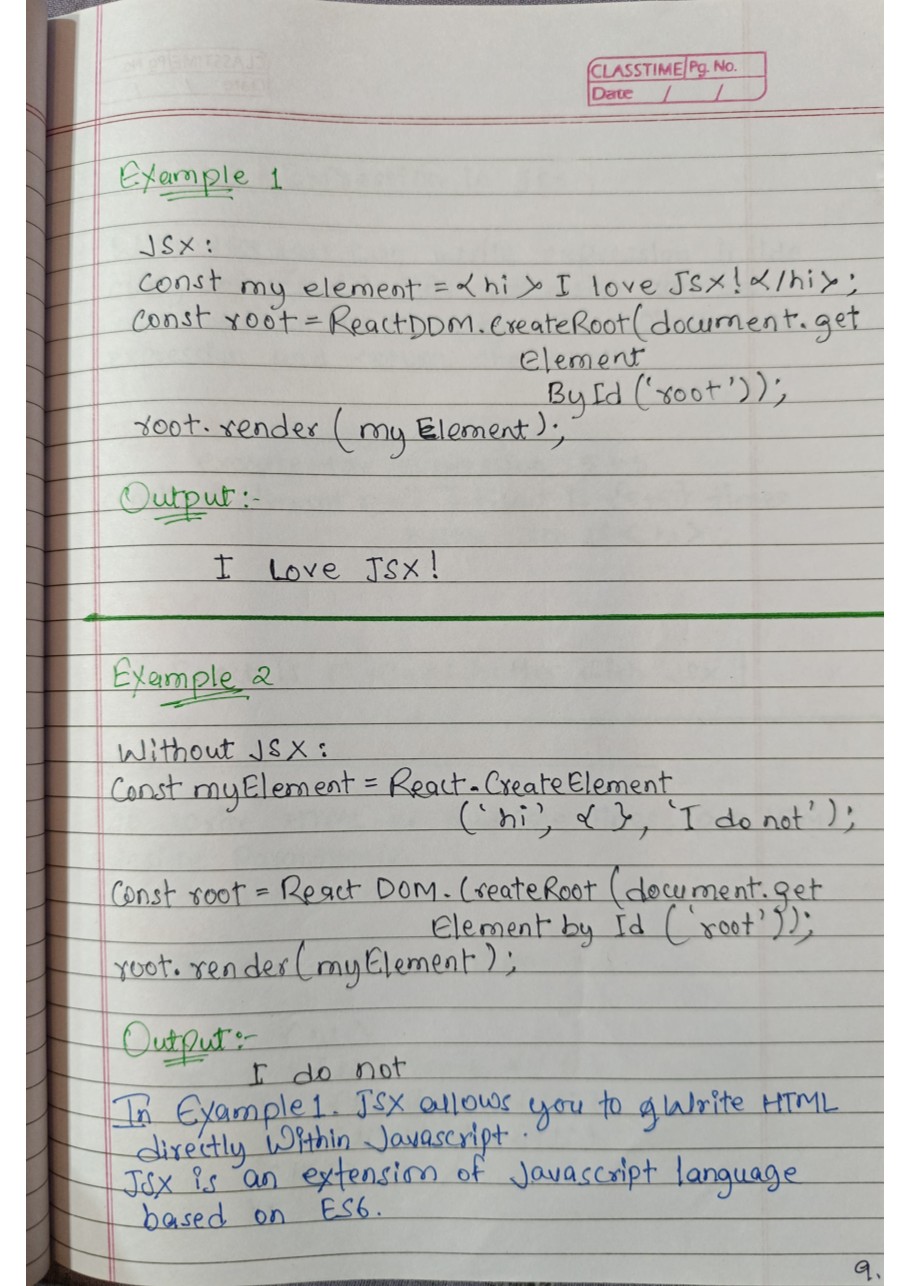 CLASSTIME Pg. No.
Date / /
Example 1
JSX:
Const my element = <hi> I love JSX! </hi>;
Const root = ReactDOM.CreateRoot(document.get
Element
By Id ('root'));
root.render (my Element);
Output:-
I Love JSX!
Example 2
Without JSX:
Const myElement = React.CreateElement
('hi', { }, 'I do not');
Const root = React DOM.CreateRoot (document.get
Element by Id ('root'));
root.render(myElement);
Output:-
I do not
In Example 1. JSX allows you to write HTML
directly Within Javascript.
JSX is an extension of Javascript language
based on ES6.
9.